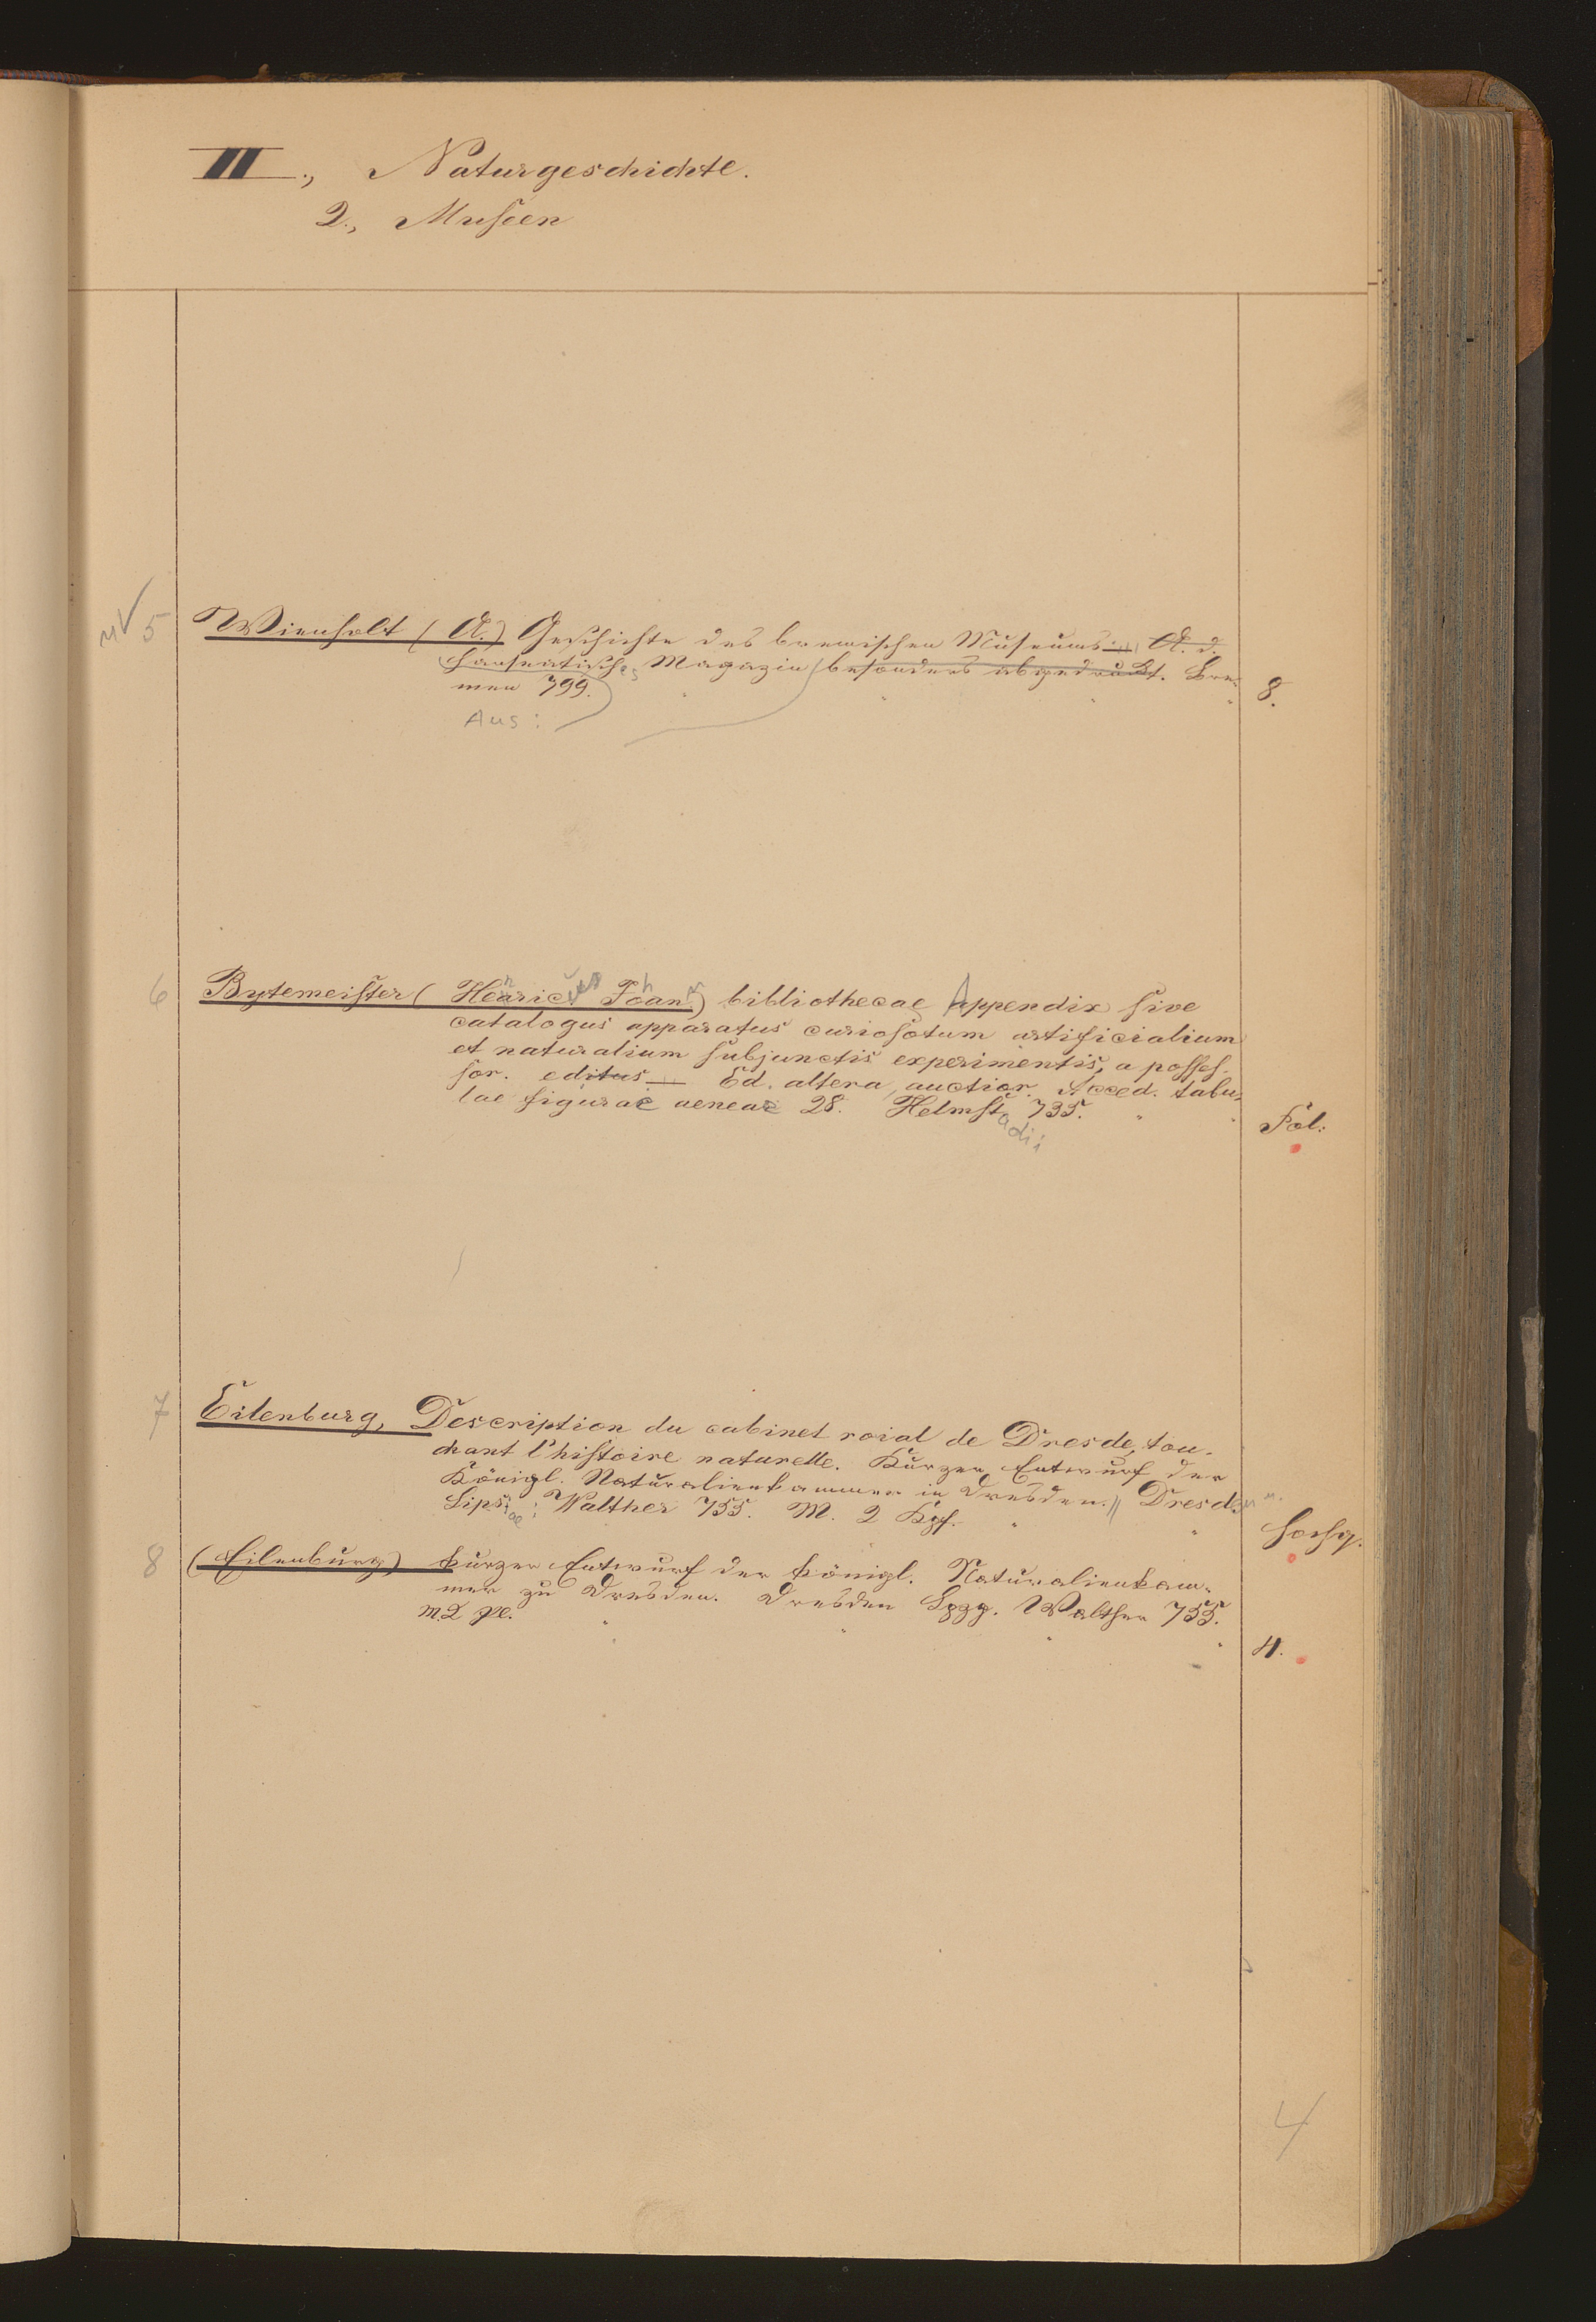 II., Naturgeschichte.
2., Museen
5 Wienholt (A.) Geschichte des bremischen Museums A. d.
Hanseatisches Magazin besonders abgedruckt. Bre-
men 799. 8.
Aus:
6 Bytemeister (Henric Johan) bibliothecae Appendix sive
catalogus apparatus curiosotum artificialium
et naturalium subjunctis experimentis, a posses-
sor. editus Ed. altera, auctior. Acced. tabu-
lae figurae aeneae 28. Helmstadii 735. Fol.
7 Eilenburg, Description du cabinet roial de Dresde, tou-
chant l'histoire naturelle. Kurzer Entwurf der
Königl. Naturalienkammer in Dresden. // Dresd.
Lipsiae: Walther 755. M. 2 Kpf.
8 (Eilenburg) kurzer Entwurf der königl. Naturalienkam-
mer zu Dresden. Dresden Lpzg. Walther 755.
M 2 pl. 4.
4